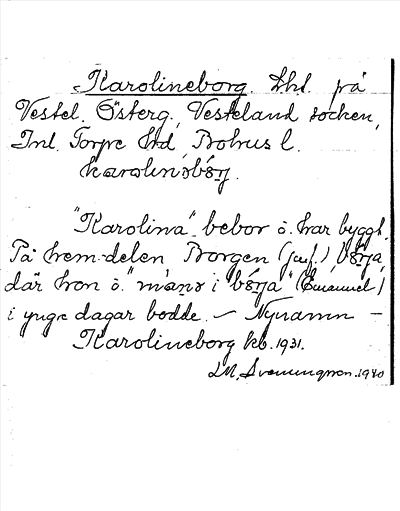 Karolineborg. Lht. på
Vestel. Österg., Vesteland socken,
Inl. Torpe Hd, Bohus l.
"Karolina" bebor o. har byggt.
På hem-delen Borgen (jmf.)
där hon o. i (Emanuel)
i yngre dagar bodde. – Nynamn –
Karolineborg kb. 1931.
LM. Svenungsson. 1940